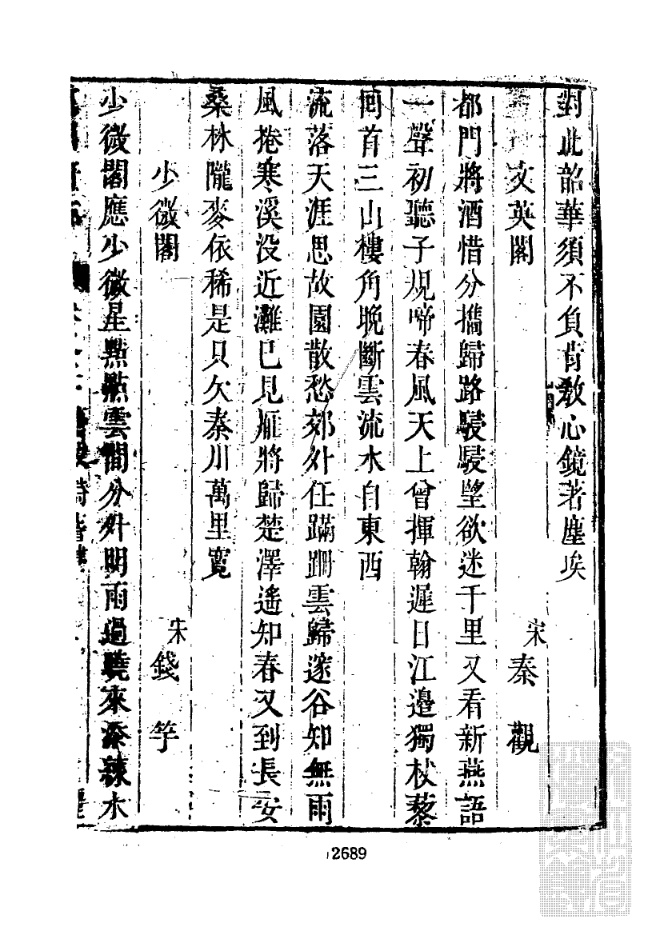 對此韶華須不負肯敎心鏡著塵埃
文英閣
宋秦觀
都門將酒惜分攜歸路駸駸望欲迷千里又看新燕語
一聲初聽子規啼春風天上曾揮翰遲日江邊獨杖藜
回首三山樓角晚斷雲流水自東西
流落天涯思故園散愁郊外任蹣跚雲歸邃谷知無雨
風捲寒溪没近灘已見雁將歸楚澤遙知春又到長安
桑林隴麥依稀是只欠秦川萬里寬
少微閣
宋錢竽
少微閣應少微星點點雲間分外明雨過曉來添綠水
12689